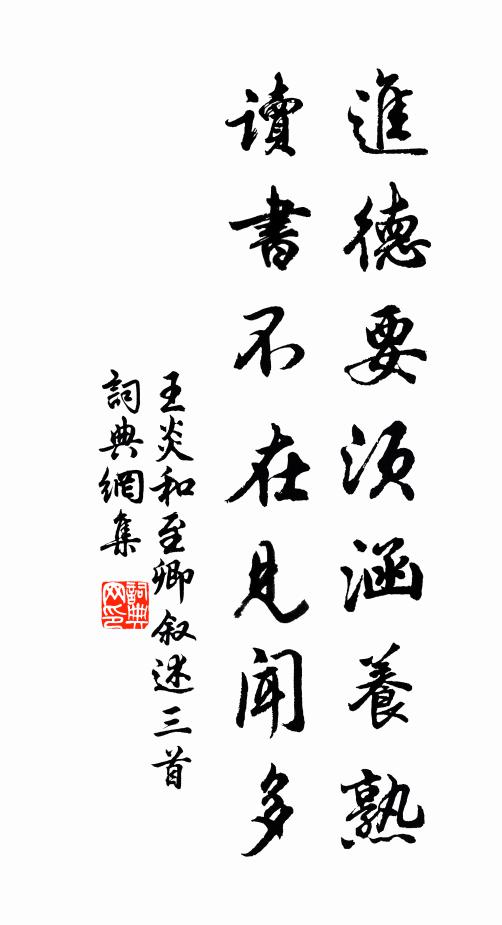 進德要須涵養熟
讀書不在見聞多
王炎和至卿叙述三首
詞典網集
詞典
网印